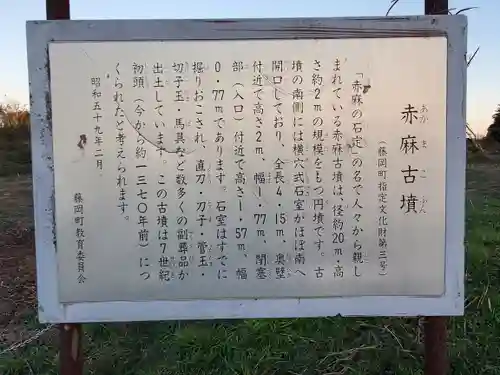 あかまこふん
赤麻古墳
(藤岡町指定文化財第三号)
「赤麻の石定」の名で人々から親し
まれている赤麻古墳は径約20m・高
さ約2mの規模をもつ円墳です。古
墳の南側には横穴式石室がほぼ南へ
開口しており、全長4・15m、裏壁
付近で高さ2m、幅1・77m、閉塞
部(入口)付近で高さ1・57m、幅
0・77mであります。石室はすでに
掘りおこされ、直刀・刀子・管玉・
切子玉・馬具など数多くの副葬品が
出土しています。この古墳は7世紀
初頭(今から約一三七〇年前)につ
くられたと考えられます。
昭和五十九年二月
藤岡町教育委員会